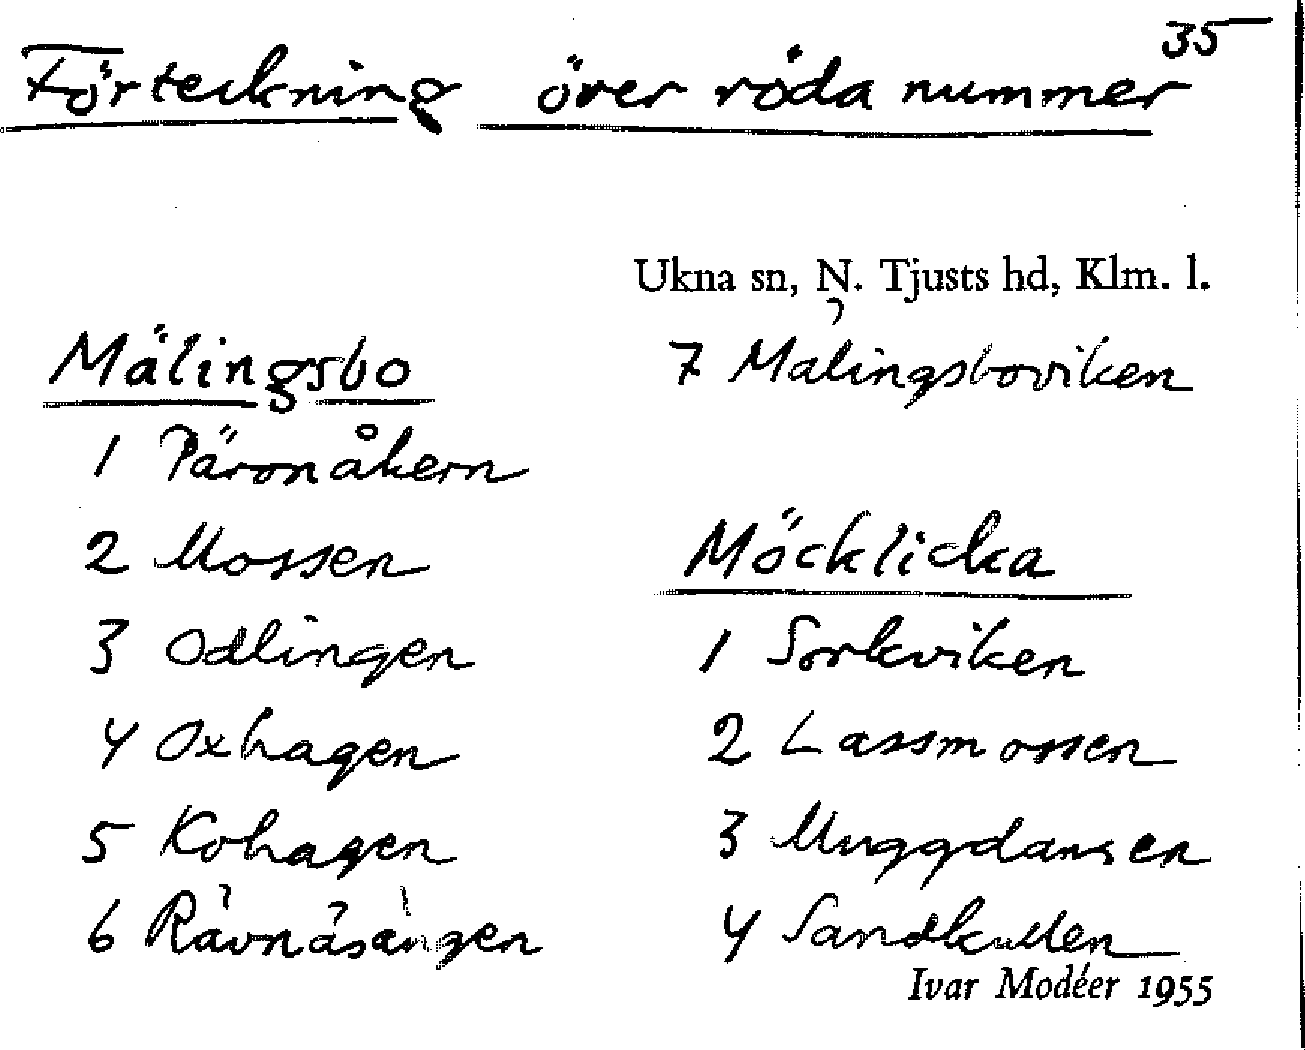 35
Förteckning över röda nummer
Ukna sn, N. Tjusts hd, Klm. l.
Mälingsbo
1 Päronåkern
2 Mossen
3 Odlingen
4 Oxhagen
5 Kohagen
6 Rävnäsängen
7 Mälingsboviken
Möcklicka
1 Sorkviken
2 Lassmossen
3 Muggdansen
4 Sandkullen
Ivar Modéer 1955